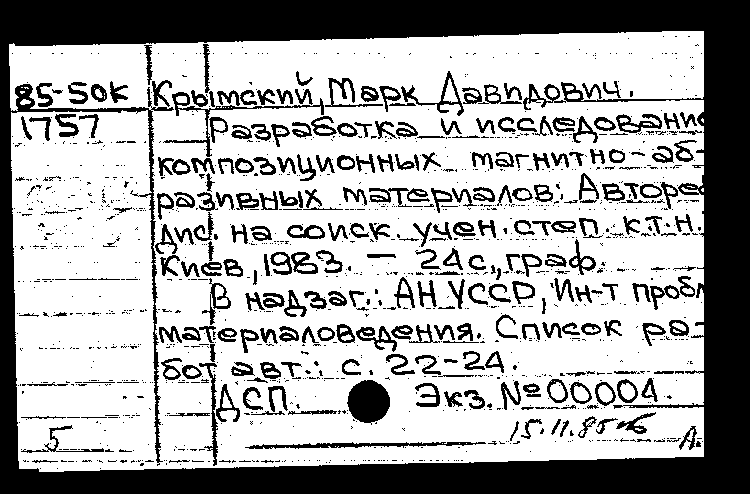 85-50к Крымский, Марк Давидович.
1757 Разработка и исследование
композиционных магнитно-аб-
разивных материалов: Авторе
дис. на соиск. учен. степ. к.т.н.
Киев, 1983. — 24 с., граф.
В надзаг.: АН УССР, Ин-т пробл
материаловедения. Список ра-
бот авт.: с. 22-24.
ДСП. Экз. № 00004.
15.11.85
5 А.